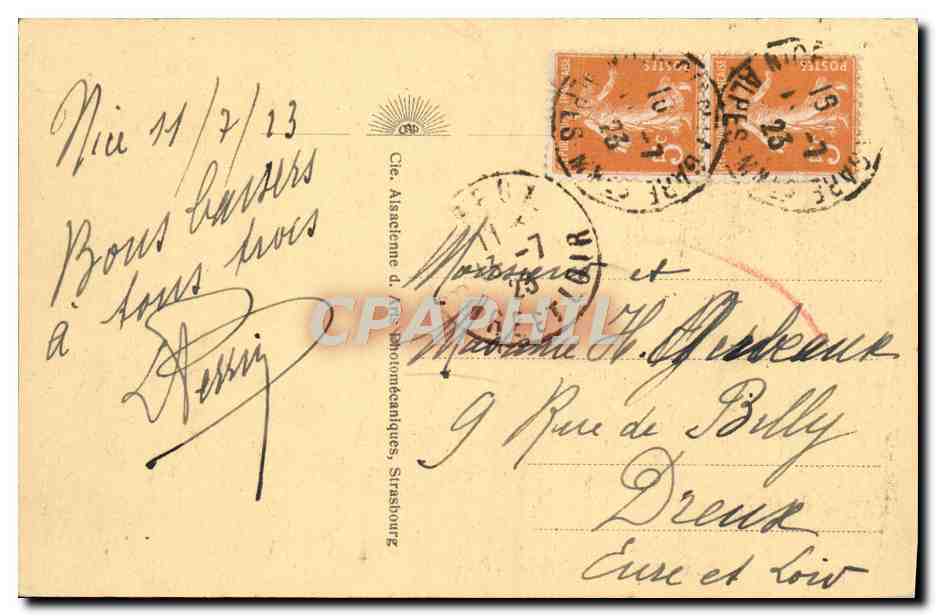 Nice 11/7/23
Bons baisers
à tous trois
Perrin
Cie. Alsacienne d. Arts Photomécaniques, Strasbourg
POSTES
5c
POSTES
5c
GARE
ALPES
15
-7
23
GARE
ALPES
15
-7
23
DREUX
11
-7
23
EURE-ET-LOIR
CPAPHIL
Monsieur et
Madame H.
9 Rue de Billy
Dreux
Eure et Loir